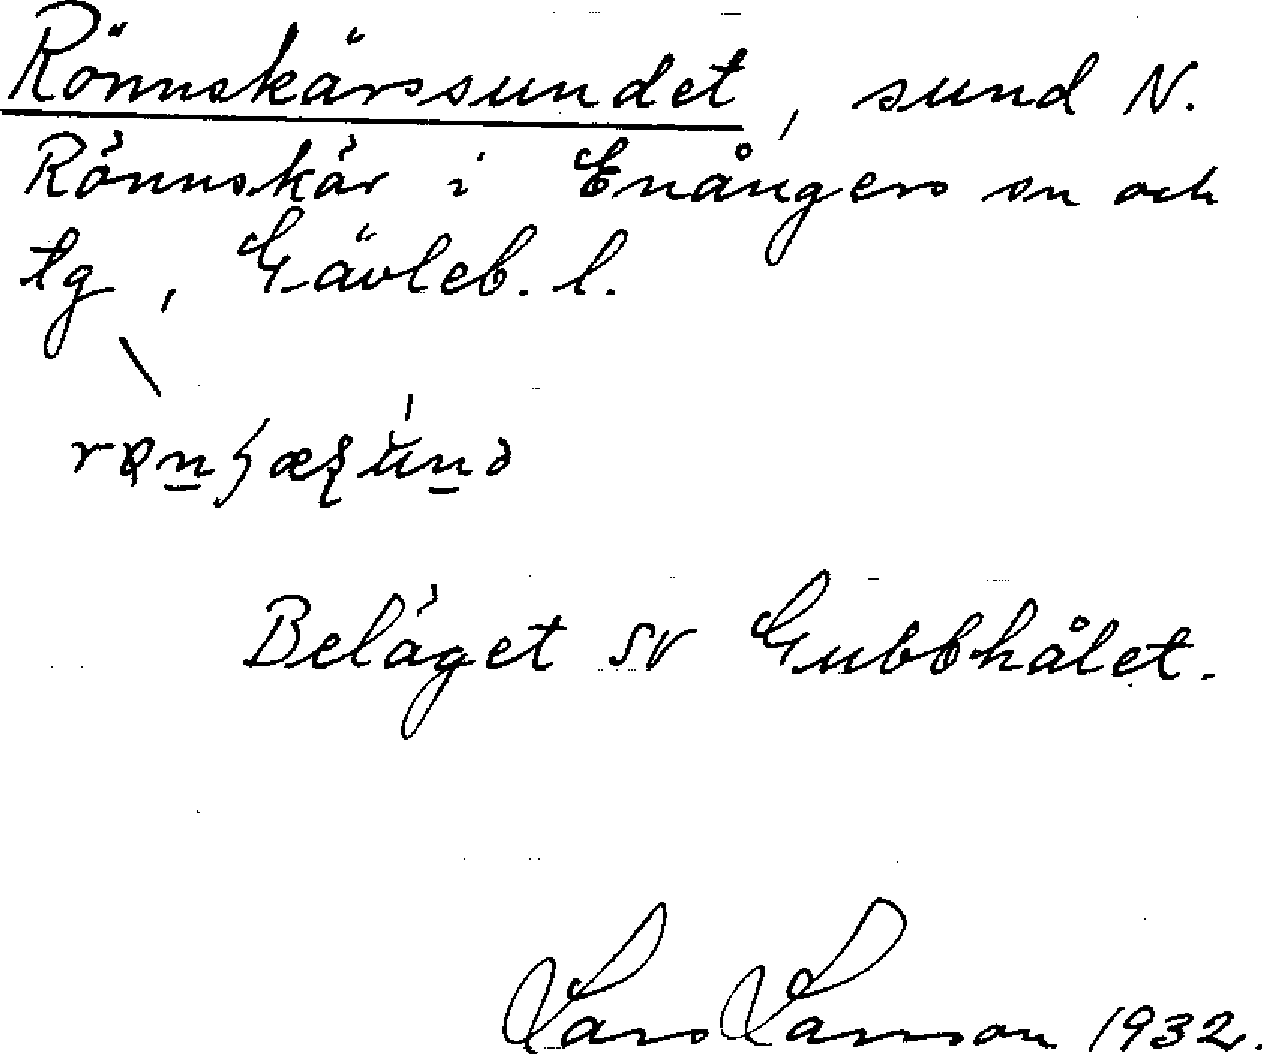 Rönnskärssundet, sund N.
Rönnskär i Enångers sn och
tg, Gävleb. l.
Beläget SV Gubbhålet.
Lars Larsson 1932.